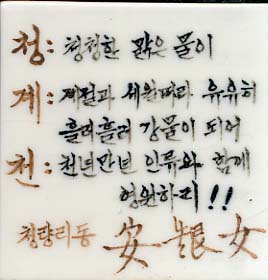 청: 청청한 맑은 물이
계: 계절과 세월따라 유유히
흘러흘러 강물이 되어
천: 천년만년 인류와 함께
영원하리!!
청량리동 安 銀 女